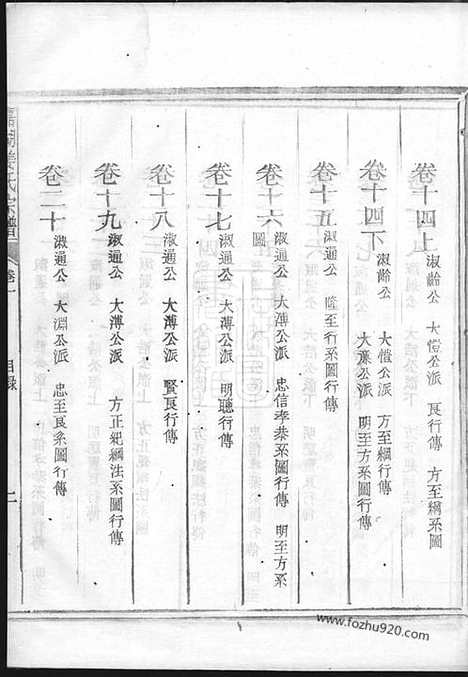 卷十四上 淑齡公 大愷公派 良行傳 方至綱系圖
卷十四下 淑齡公 大愷公派 方至綱行傳
大廉公派 明至方系圖行傳
卷十五 淑通公 隆至行系圖行傳
卷十六 淑通公 大溥公派 忠信孝恭系圖行傳 明至方系
圖
卷十七 淑通公 大溥公派 明聰行傳
卷十八 淑通公 大溥公派 賢良行傳
卷十九 淑通公 大溥公派 方正紀綱法系圖行傳
卷二十 淑通公 大淵公派 忠至良系圖行傳
氏宗譜 卷一 目錄 二
www.fozhu920.com